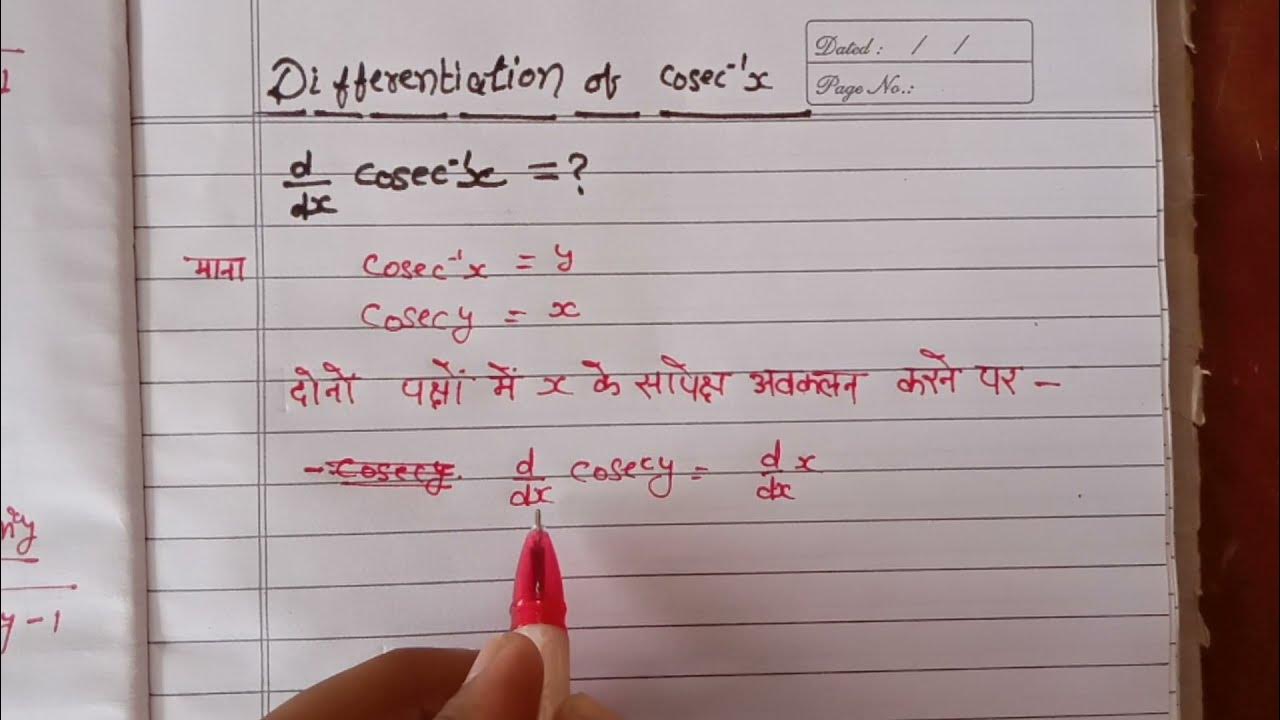 Dated : / /
Page No.:
Differentiation of cosec⁻¹x
d/dx cosec⁻¹x = ?
माना cosec⁻¹x = y
cosecy = x
दोनों पक्षों में x के सापेक्ष अवकलन करने पर -
-cosecy. d/dx cosecy = d/dx x
1
y - 1